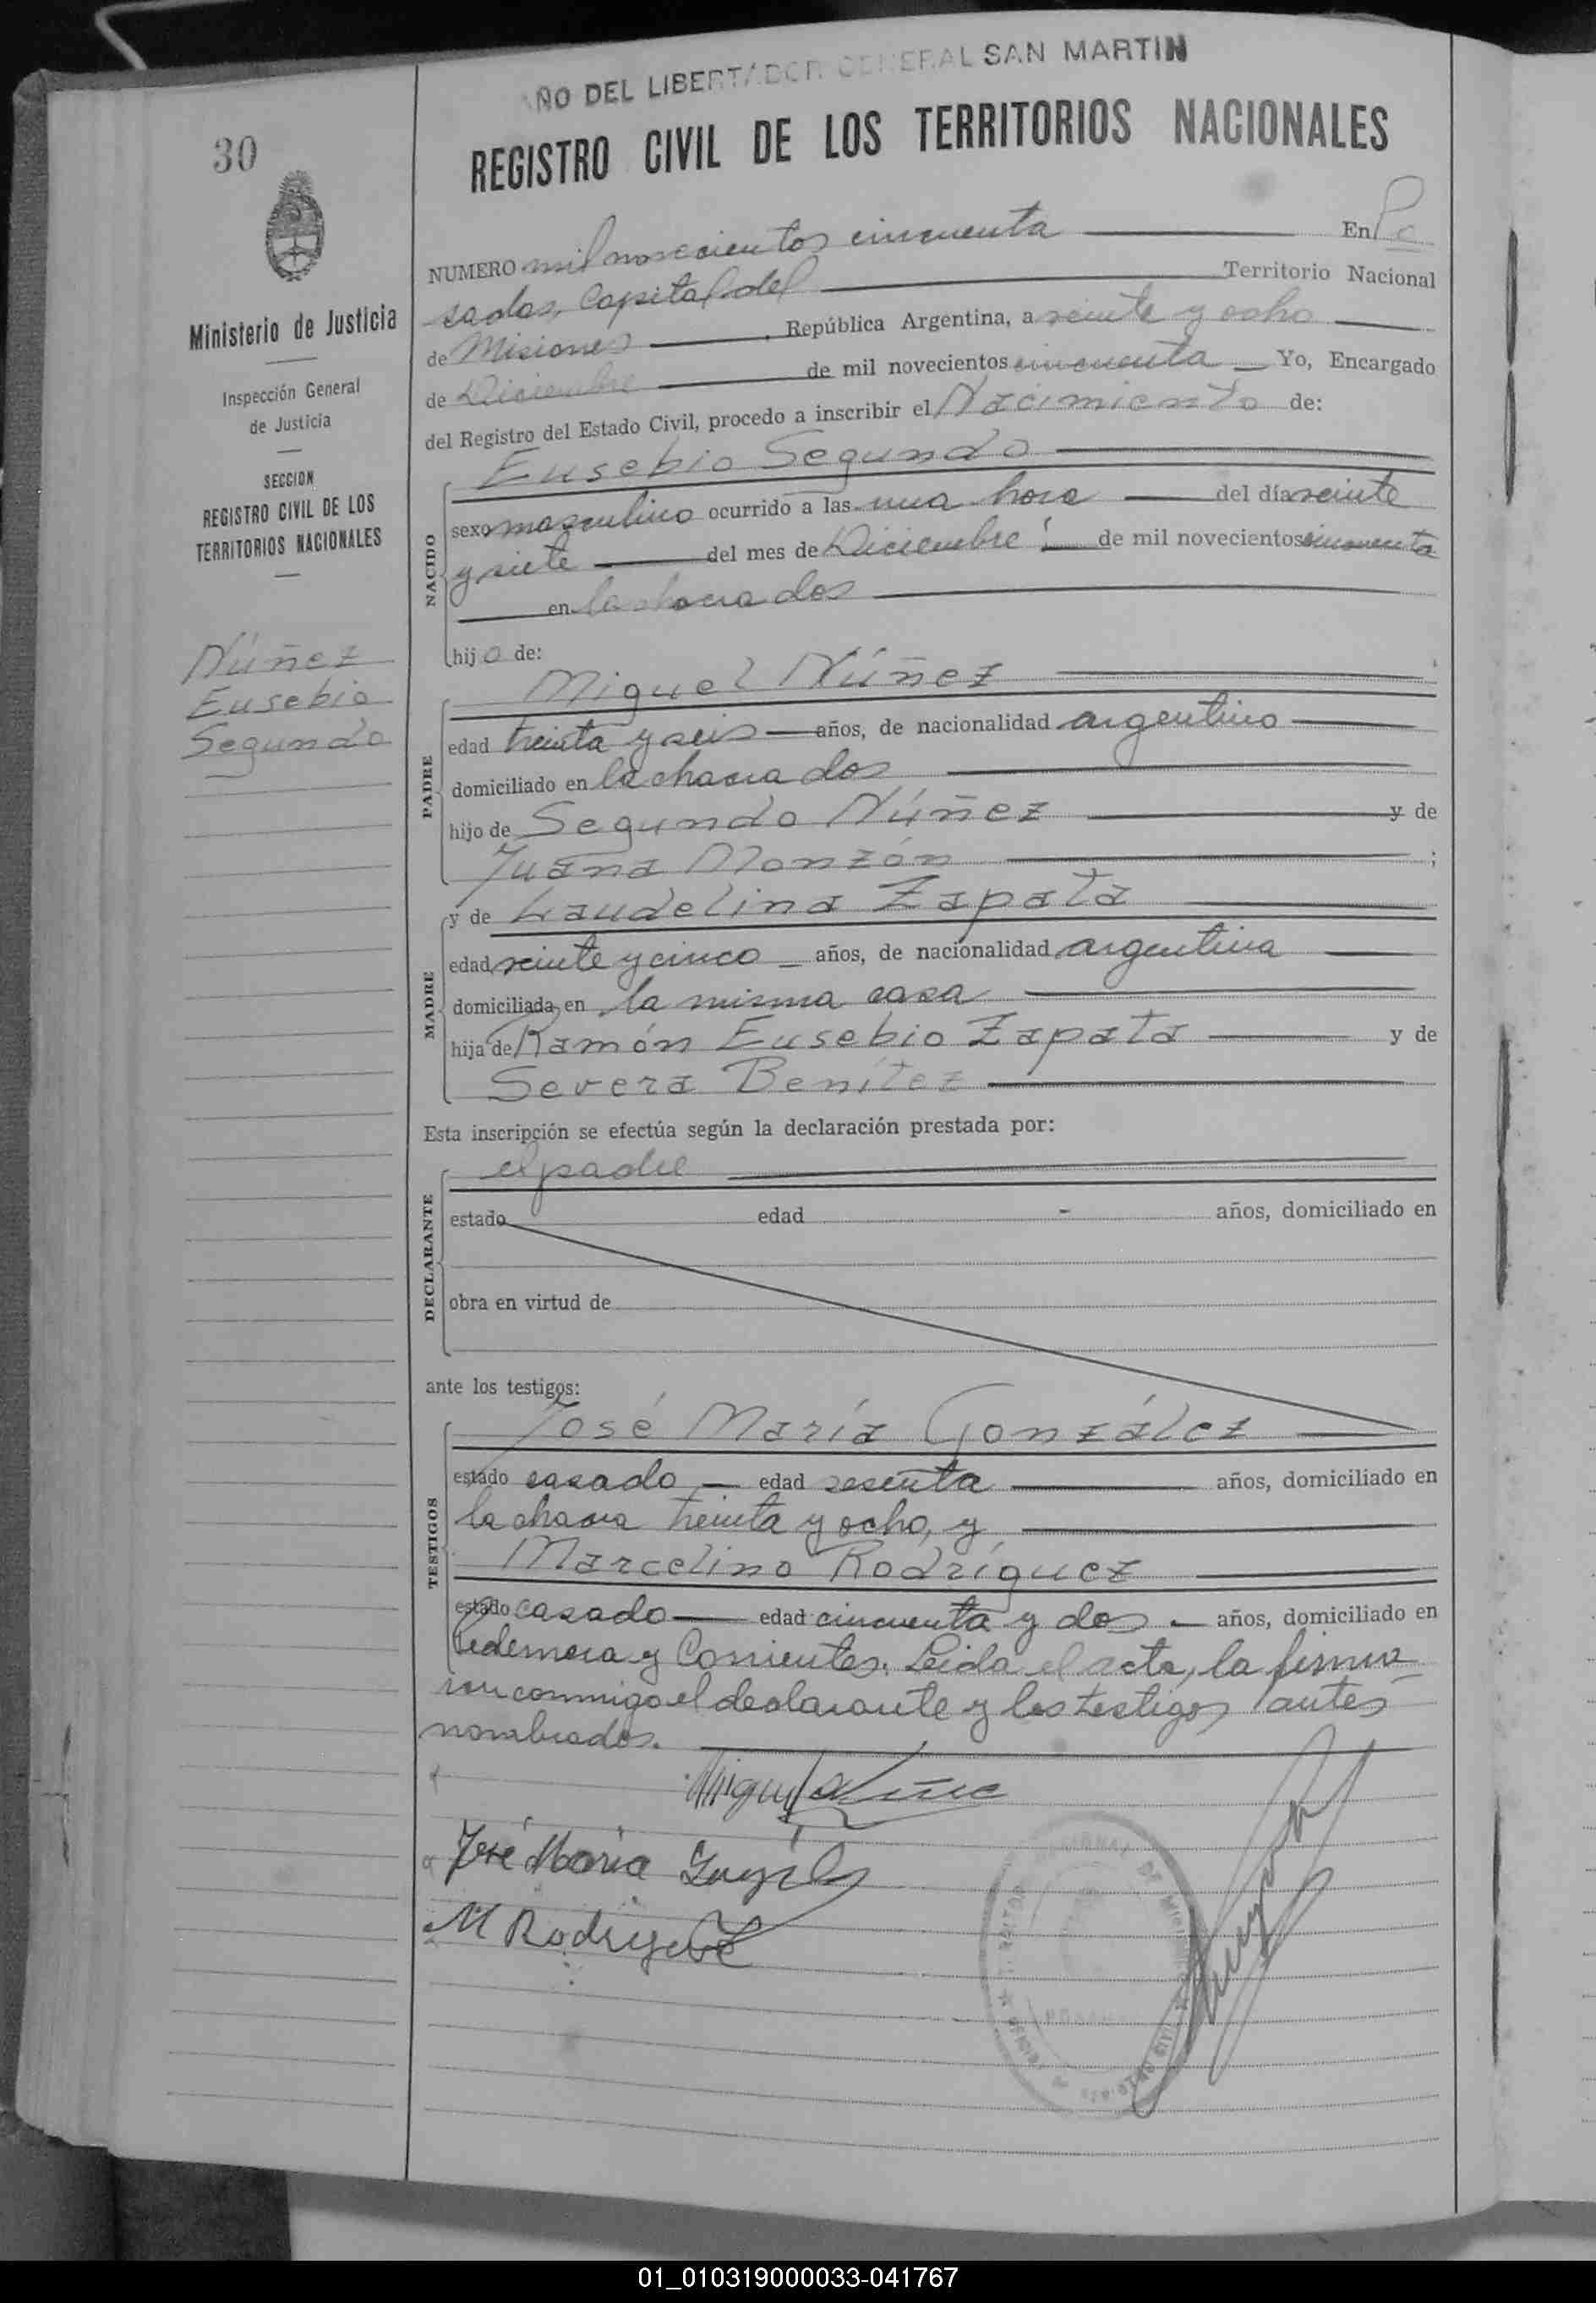 AÑO DEL LIBERTADOR GENERAL SAN MARTIN
REGISTRO CIVIL DE LOS TERRITORIOS NACIONALES
30
Ministerio de Justicia
Inspección General
de Justicia
SECCION
REGISTRO CIVIL DE LOS
TERRITORIOS NACIONALES
Núñez
Eusebio
Segundo
NUMERO mil novecientos cincuenta En Po
sadas, Capital del Territorio Nacional
de Misiones, República Argentina, a veinte y ocho
de Diciembre de mil novecientos cincuenta Yo, Encargado
del Registro del Estado Civil, procedo a inscribir el Nacimiento de:
NACIDO
Eusebio Segundo
sexo masculino ocurrido a las una hora del día veinte
y siete del mes de Diciembre de mil novecientos cincuenta
en la chacra dos
hijo de:
PADRE
Miguel Núñez
edad treinta y seis años, de nacionalidad argentino
domiciliado en la chacra dos
hijo de Segundo Núñez y de
Juana Monzón ;
MADRE
y de Laudelina Zapata
edad veinte y cinco años, de nacionalidad argentina
domiciliada en la misma casa
hija de Ramón Eusebio Zapata y de
Severa Benítez
Esta inscripción se efectúa según la declaración prestada por:
DECLARANTE
el padre
estado edad años, domiciliado en
obra en virtud de
ante los testigos:
TESTIGOS
José María González
estado casado edad sesenta años, domiciliado en
la chacra treinta y ocho, y
Marcelino Rodríguez
estado casado edad cincuenta y dos años, domiciliado en
y Corrientes. Leida el acta, la firma
ron conmigo el declarante y los testigos antes
nombrados.
José María
M Rodriguez
01_010319000033-041767